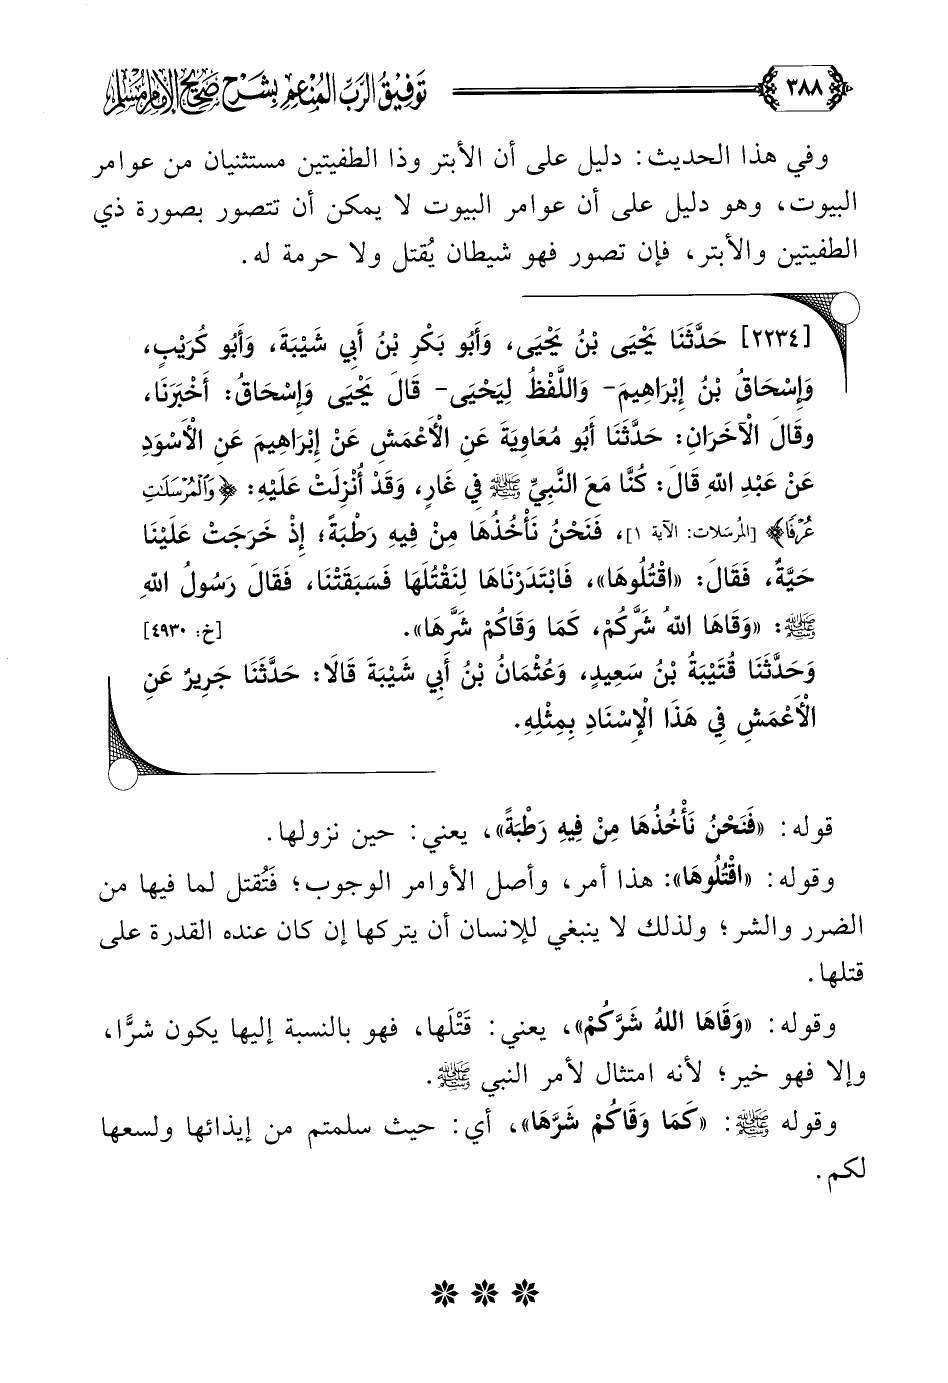 ٣٨٨ توفيق الرب المنعم بشرح صحيح الإمام مسلم
وفي هذا الحديث: دليل على أن الأبتر وذا الطفيتين مستثنيان من عوامر
البيوت، وهو دليل على أن عوامر البيوت لا يمكن أن تتصور بصورة ذي
الطفيتين والأبتر، فإن تصور فهو شيطان يُقتل ولا حرمة له.
[٢٢٣٤] حَدَّثَنَا يَحْيَى بْنُ يَحْيَى، وَأَبُو بَكْرِ بْنُ أَبِي شَيْبَةَ، وَأَبُو كُرَيْبٍ،
وَإِسْحَاقُ بْنُ إِبْرَاهِيمَ- وَاللَّفْظُ لِيَحْيَى- قَالَ يَحْيَى وَإِسْحَاقُ: أَخْبَرَنَا،
وقَالَ الْآخَرَانِ: حَدَّثَنَا أَبُو مُعَاوِيَةَ عَنِ الْأَعْمَشِ عَنْ إِبْرَاهِيمَ عَنِ الْأَسْوَدِ
عَنْ عَبْدِ اللهِ قَالَ: كُنَّا مَعَ النَّبِيِّ ﷺ فِي غَارٍ، وَقَدْ أُنْزِلَتْ عَلَيْهِ: ﴿وَٱلْمُرْسَلَٰتِ
عُرْفًا﴾ [المُرسَلات: الآية ١]، فَنَحْنُ نَأْخُذُهَا مِنْ فِيهِ رَطْبَةً؛ إِذْ خَرَجَتْ عَلَيْنَا
حَيَّةٌ، فَقَالَ: «اقْتُلُوهَا»، فَابْتَدَرْنَاهَا لِنَقْتُلَهَا فَسَبَقَتْنَا، فَقَالَ رَسُولُ اللهِ
ﷺ: «وَقَاهَا اللهُ شَرَّكُمْ، كَمَا وَقَاكُمْ شَرَّهَا». [خ: ٤٩٣٠]
وَحَدَّثَنَا قُتَيْبَةُ بْنُ سَعِيدٍ، وَعُثْمَانُ بْنُ أَبِي شَيْبَةَ قَالَا: حَدَّثَنَا جَرِيرٌ عَنِ
الْأَعْمَشِ فِي هَذَا الْإِسْنَادِ بِمِثْلِهِ.
قوله: «فَنَحْنُ نَأْخُذُهَا مِنْ فِيهِ رَطْبَةً»، يعني: حين نزولها.
وقوله: «اقْتُلُوهَا»: هذا أمر، وأصل الأوامر الوجوب؛ فَتُقتل لما فيها من
الضرر والشر؛ ولذلك لا ينبغي للإنسان أن يتركها إن كان عنده القدرة على
قتلها.
وقوله: «وَقَاهَا اللهُ شَرَّكُمْ»، يعني: قَتْلَها، فهو بالنسبة إليها يكون شرًّا،
وإلا فهو خير؛ لأنه امتثال لأمر النبي ﷺ.
وقوله ﷺ: «كَمَا وَقَاكُمْ شَرَّهَا»، أي: حيث سلمتم من إيذائها ولسعها
لكم.